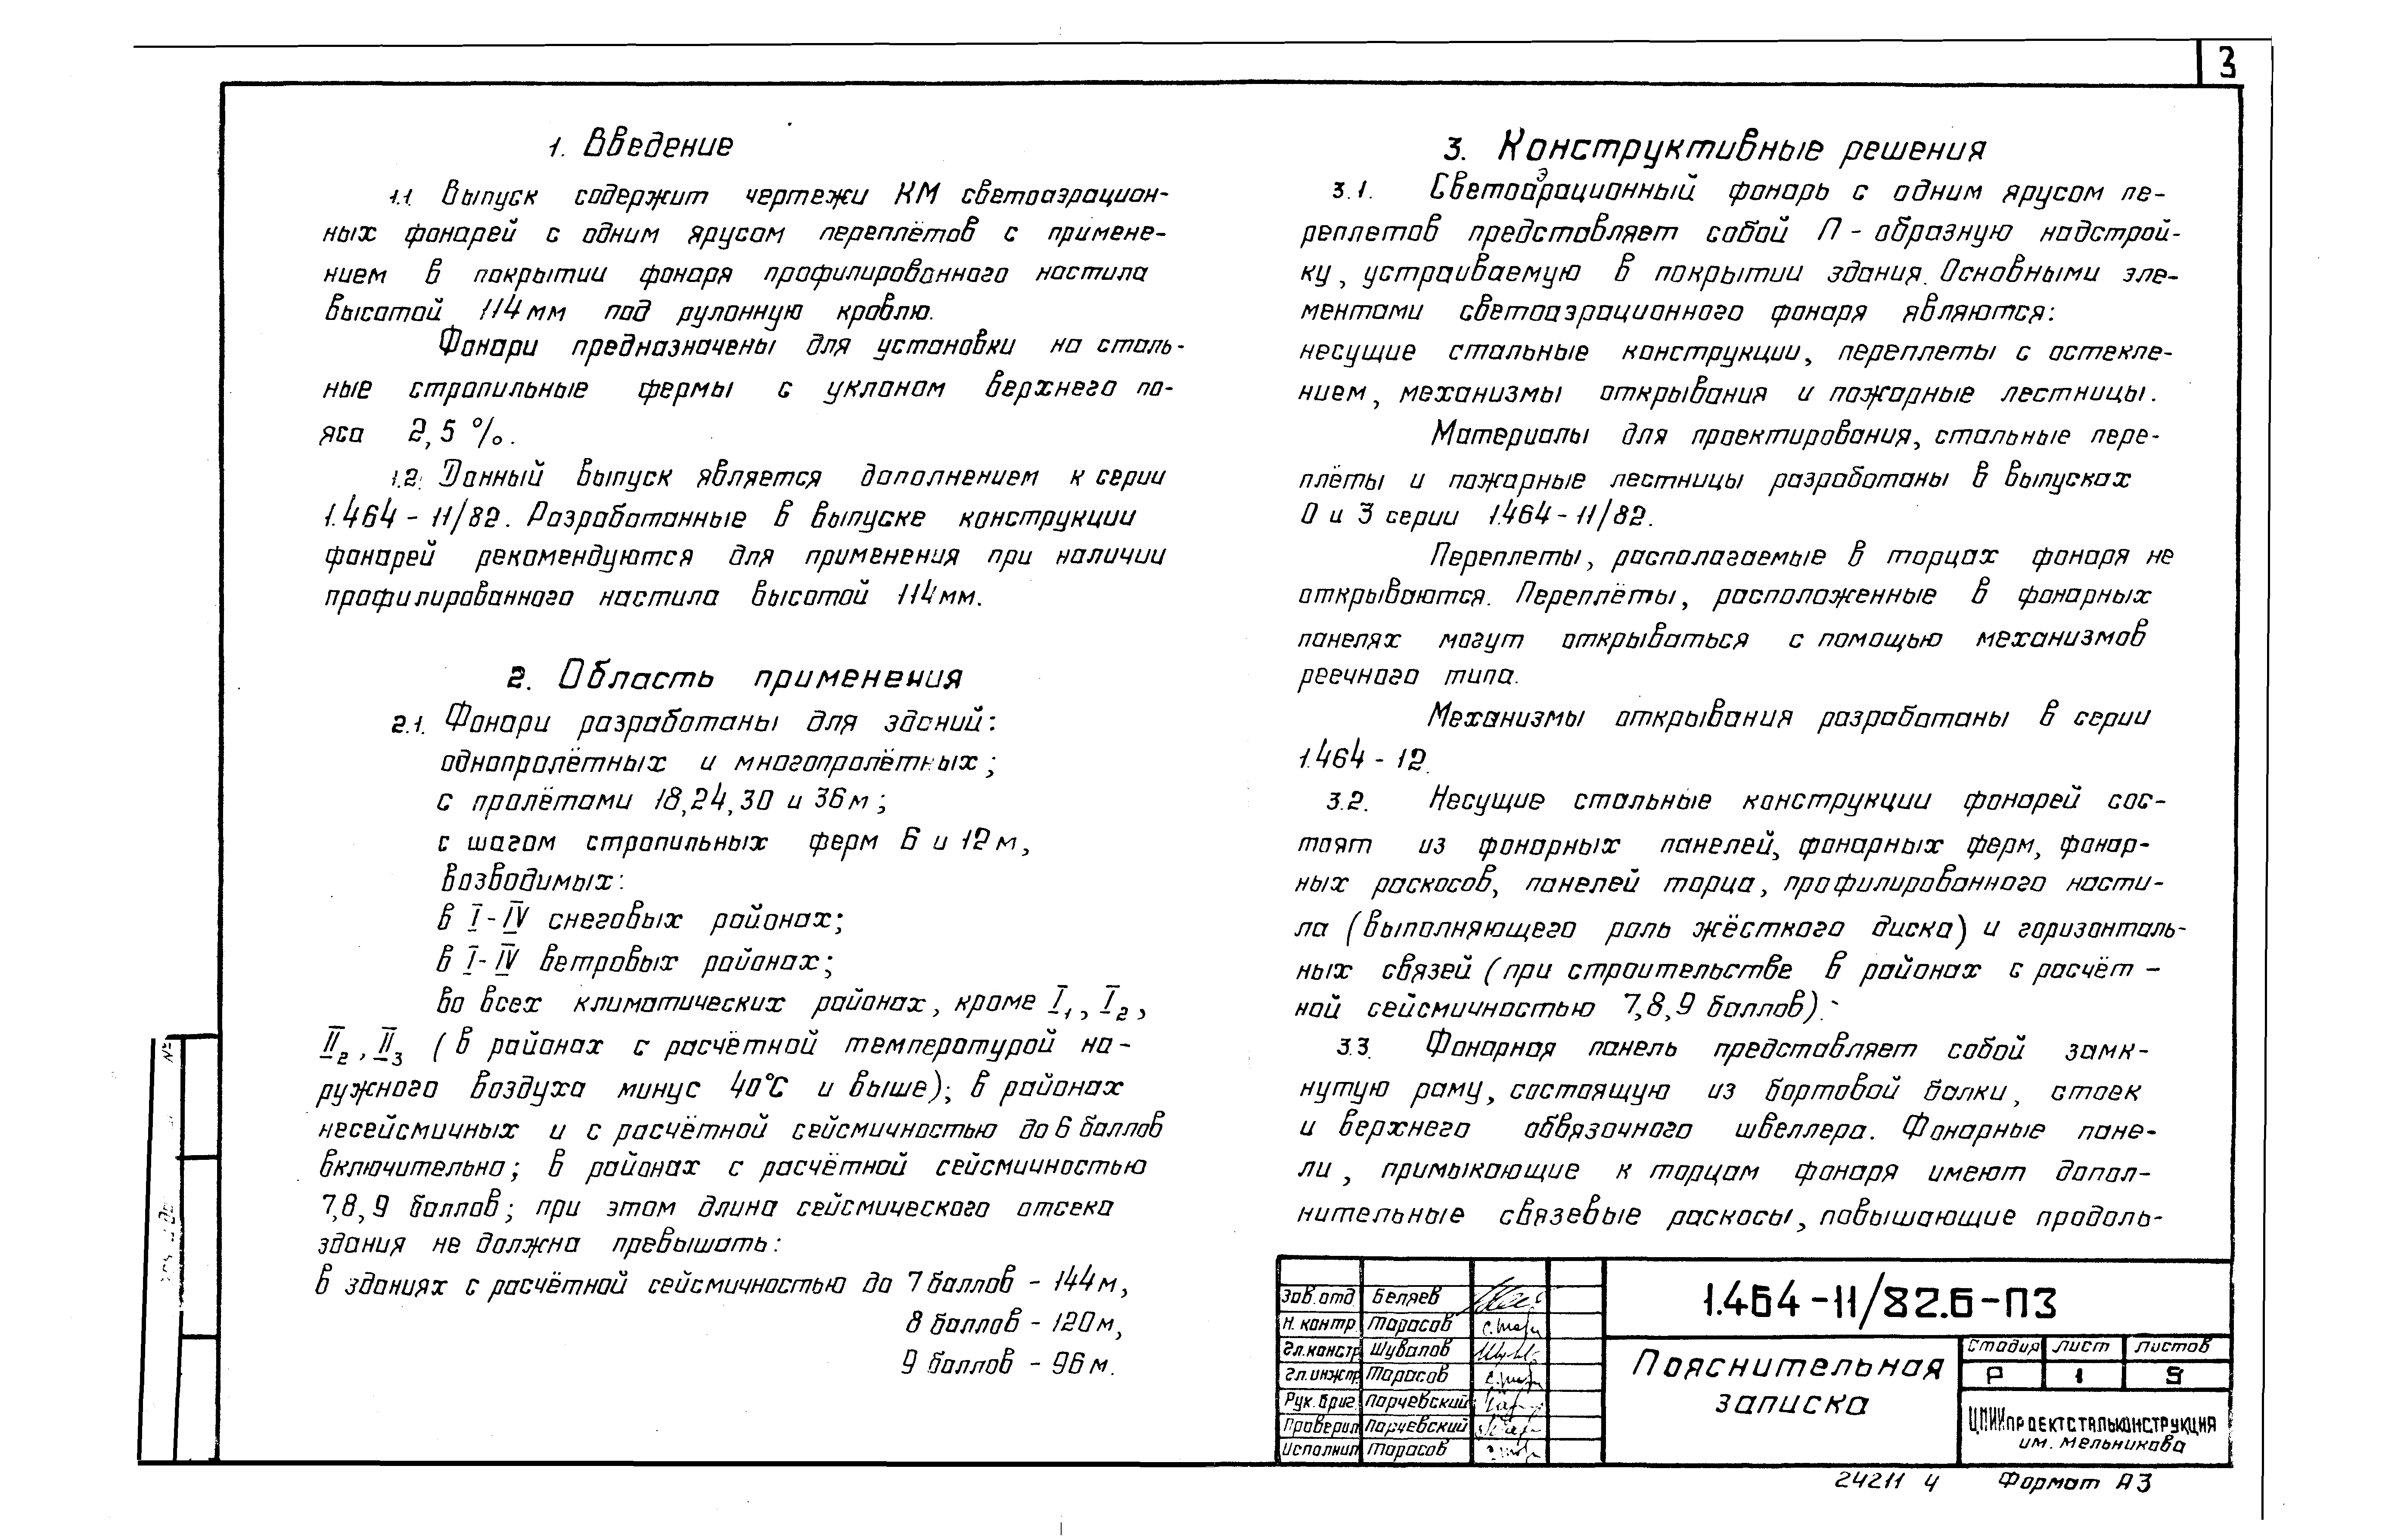 3
1. Введение
1.1. Выпуск содержит чертежи КМ светоаэрацион-
ных фонарей с одним ярусом переплётов с примене-
нием в покрытии фонаря профилированного настила
высотой 114 мм под рулонную кровлю.
Фонари предназначены для установки на сталь-
ные стропильные фермы с уклоном верхнего по-
яса 2,5 %.
1.2. Данный выпуск является дополнением к серии
1.464 - 11/82. Разработанные в выпуске конструкции
фонарей рекомендуются для применения при наличии
профилированного настила высотой 114 мм.
2. Область применения
2.1. Фонари разработаны для зданий:
однопролётных и многопролётных;
с пролётами 18, 24, 30 и 36 м;
с шагом стропильных ферм 6 и 12 м,
возводимых:
в I - IV снеговых районах;
в I - IV ветровых районах;
во всех климатических районах, кроме I₁, I₂,
II₂, II₃ (в районах с расчётной температурой на-
ружного воздуха минус 40°С и выше); в районах
несейсмичных и с расчётной сейсмичностью до 6 баллов
включительно; в районах с расчётной сейсмичностью
7, 8, 9 баллов; при этом длина сейсмического отсека
здания не должна превышать:
в зданиях с расчётной сейсмичностью до 7 баллов - 144 м,
8 баллов - 120 м,
9 баллов - 96 м.
3. Конструктивные решения
3.1. Светоаэрационный фонарь с одним ярусом пе-
реплетов представляет собой П - образную надстрой-
ку, устраиваемую в покрытии здания. Основными эле-
ментами светоаэрационного фонаря являются:
несущие стальные конструкции, переплеты с остекле-
нием, механизмы открывания и пожарные лестницы.
Материалы для проектирования, стальные пере-
плёты и пожарные лестницы разработаны в выпусках
0 и 3 серии 1.464 - 11/82.
Переплеты, располагаемые в торцах фонаря не
открываются. Переплёты, расположенные в фонарных
панелях могут открываться с помощью механизмов
реечного типа.
Механизмы открывания разработаны в серии
1.464 - 12.
3.2. Несущие стальные конструкции фонарей сос-
тоят из фонарных панелей, фонарных ферм, фонар-
ных раскосов, панелей торца, профилированного насти-
ла (выполняющего роль жёсткого диска) и горизонталь-
ных связей (при строительстве в районах с расчёт-
ной сейсмичностью 7, 8, 9 баллов).
3.3. Фонарная панель представляет собой замк-
нутую раму, состоящую из бортовой балки, стоек
и верхнего обвязочного швеллера. Фонарные пане-
ли, примыкающие к торцам фонаря имеют допол-
нительные связевые раскосы, повышающие продоль-
Зав. отд. Беляев
Н. контр. Тарасов
Гл. констр. Шувалов
Гл. инж. пр. Тарасов
Рук. бриг. Парчевский
Проверил Парчевский
Исполнил Тарасов
1.464-11/82.6-ПЗ
Пояснительная
записка
Стадия Лист Листов
Р 1 9
ЦНИИпроектстальконструкция
им. Мельникова
24211 4 Формат А3